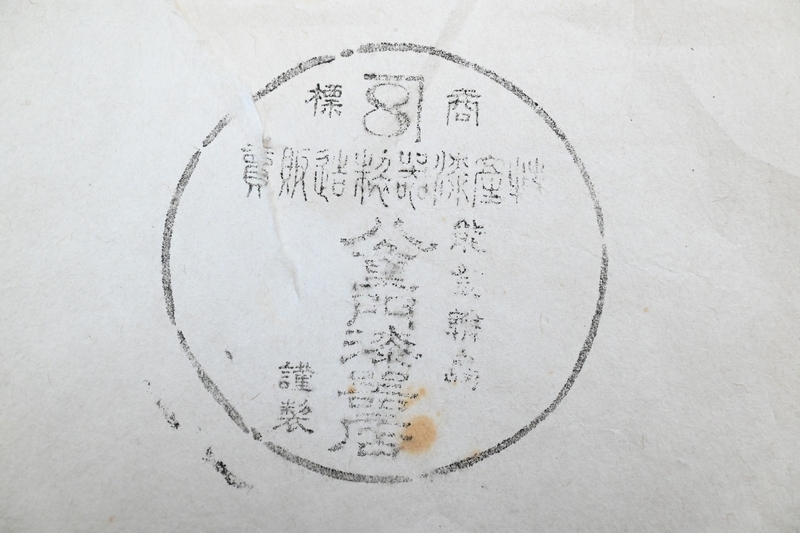 商標
産漆器製造販賣
能登輪島
門漆器店
謹製